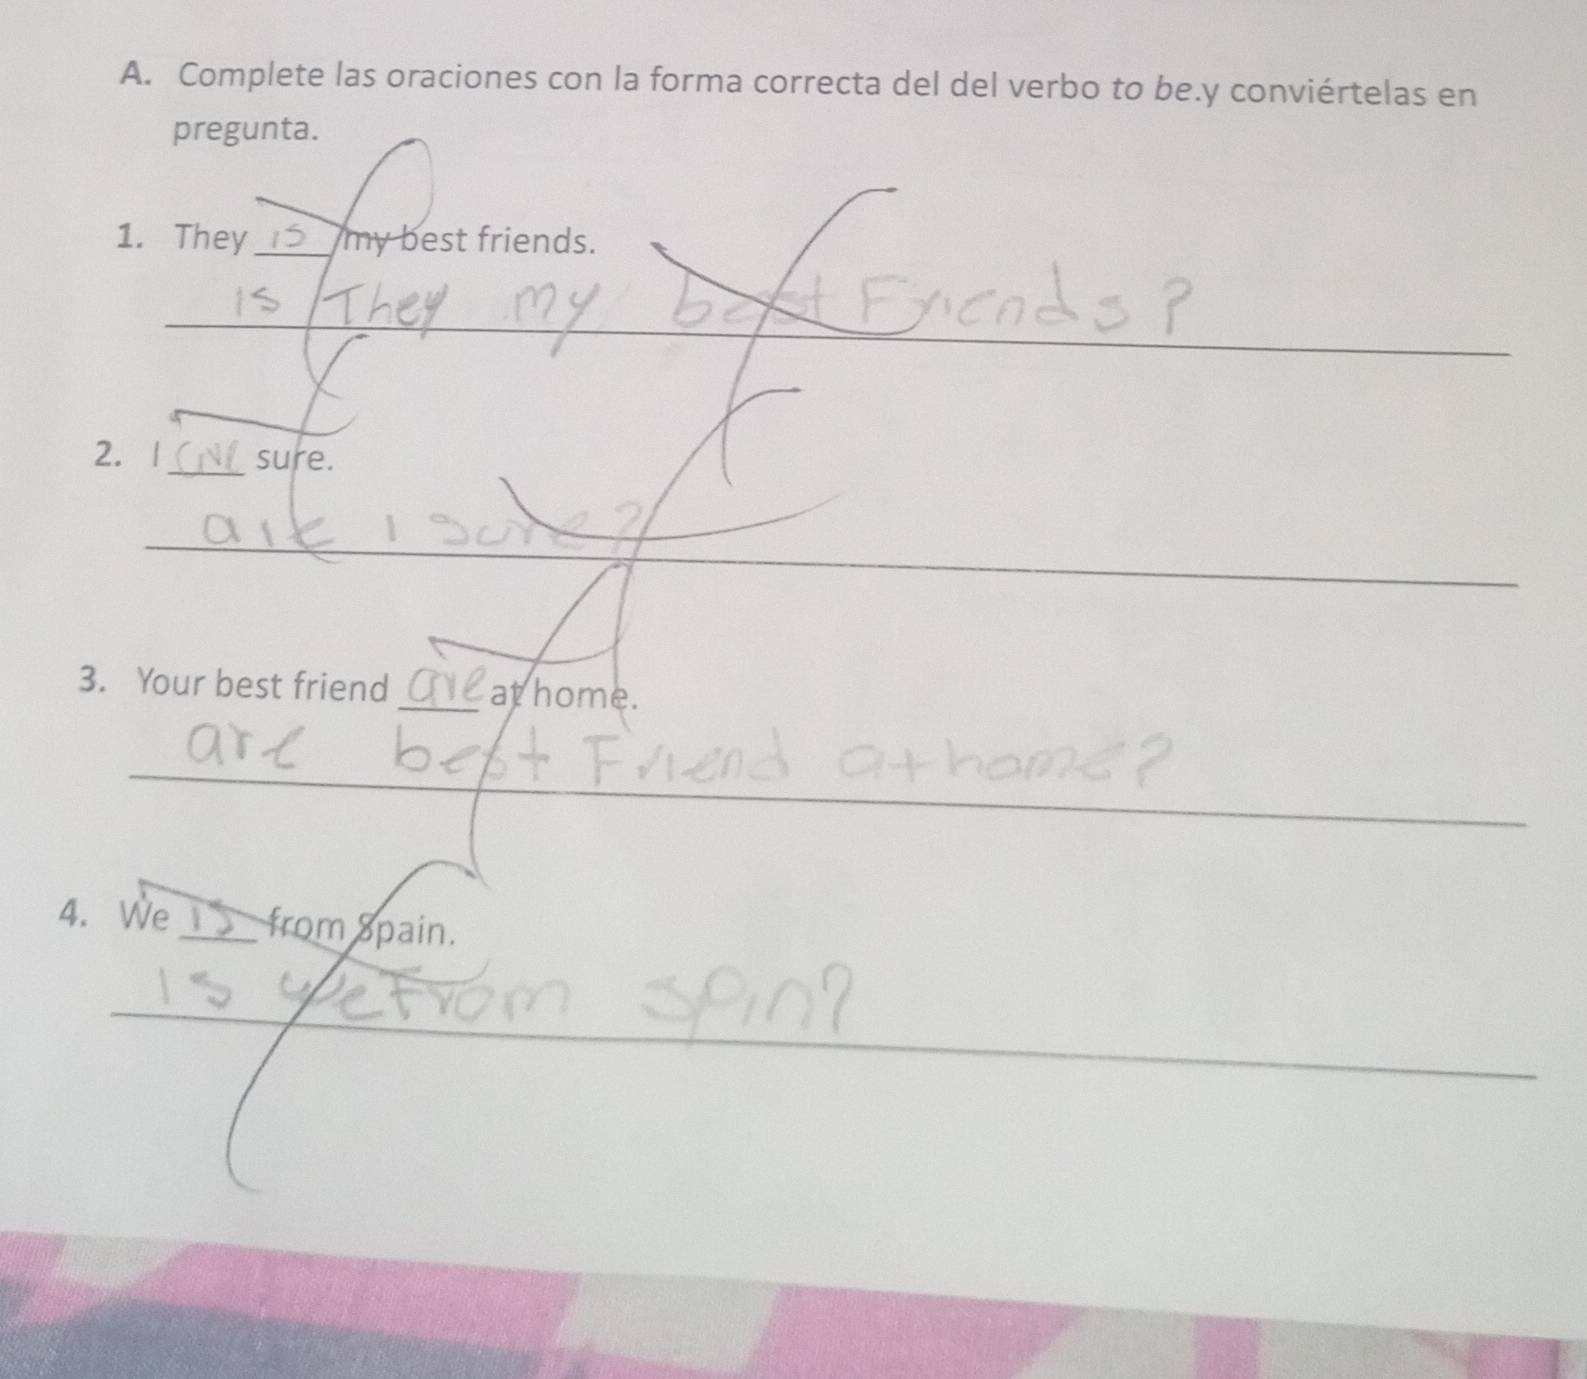 A. Complete las oraciones con la forma correcta del del verbo to be.y conviértelas en
pregunta.
1. They is my best friends.
is They my best Friends?
2. I are sure.
are I sure?
3. Your best friend are at home.
are best Friend at home?
4. We is from Spain.
is we From spin?